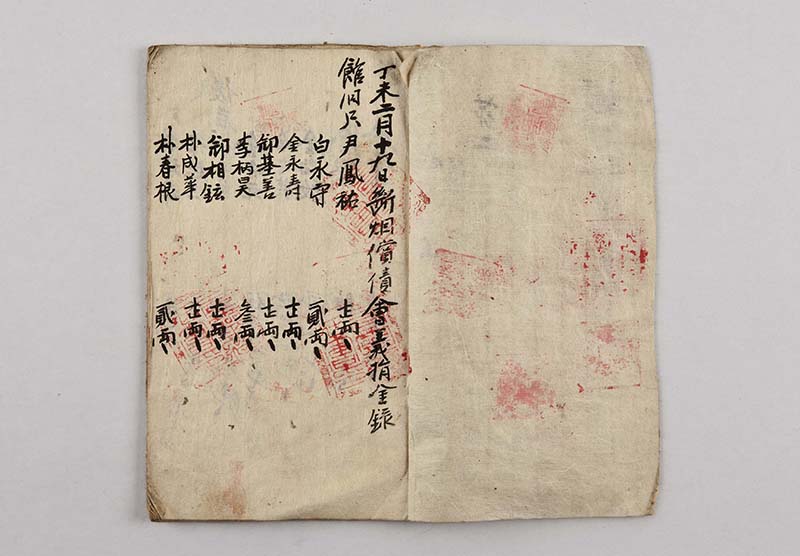 丁未二月十九日斷烟償債會義捐金錄
館 尹鳳祐 壹両
白永守 貳両
金永壽 壹両
鄭基善 壹両
李柄昊 叁両
鄭相鉉 壹両
朴成華 壹両
朴春根 貳両